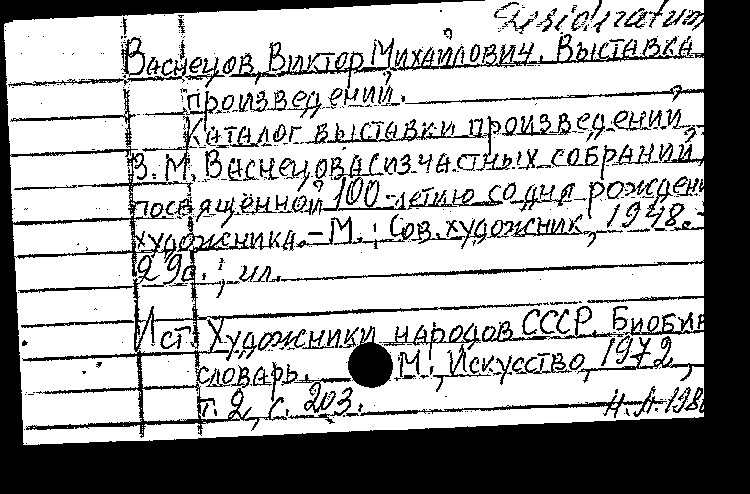 Desideratum
Васнецов, Виктор Михайлович. Выставка
произведений.
Каталог выставки произведений
В. М. Васнецова (из частных собраний),
посвящённой 100-летию со дня рожден
художника. – М.: Сов. художник, 1948. –
29с.; ил.
Ист: Художники народов СССР. Биобиб
словарь. М.: Искусство, 1972,
т. 2, с. 203.
Н. А. 198